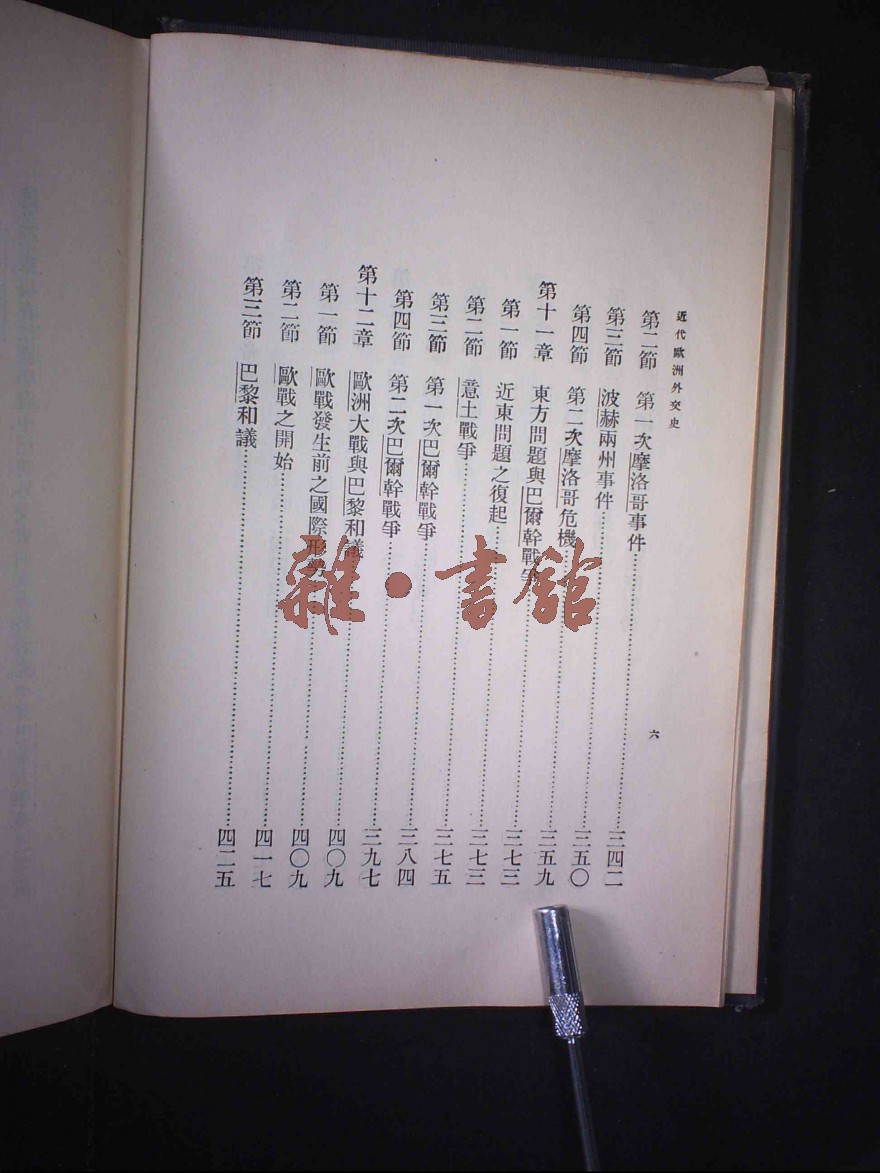 近代歐洲外交史
六
第二節 第一次摩洛哥事件…………三四二
第三節 波赫兩州事件…………三五〇
第四節 第二次摩洛哥危機…………三五九
第十一章 東方問題與巴爾幹戰爭…………三七三
第一節 近東問題之復起…………三七三
第二節 意土戰爭…………三七五
第三節 第一次巴爾幹戰爭…………三八四
第四節 第二次巴爾幹戰爭…………三九七
第十二章 歐洲大戰與巴黎和議…………四〇九
第一節 歐戰發生前之國際形勢…………四〇九
第二節 歐戰之開始…………四一七
第三節 巴黎和議…………四二五
雜·書館